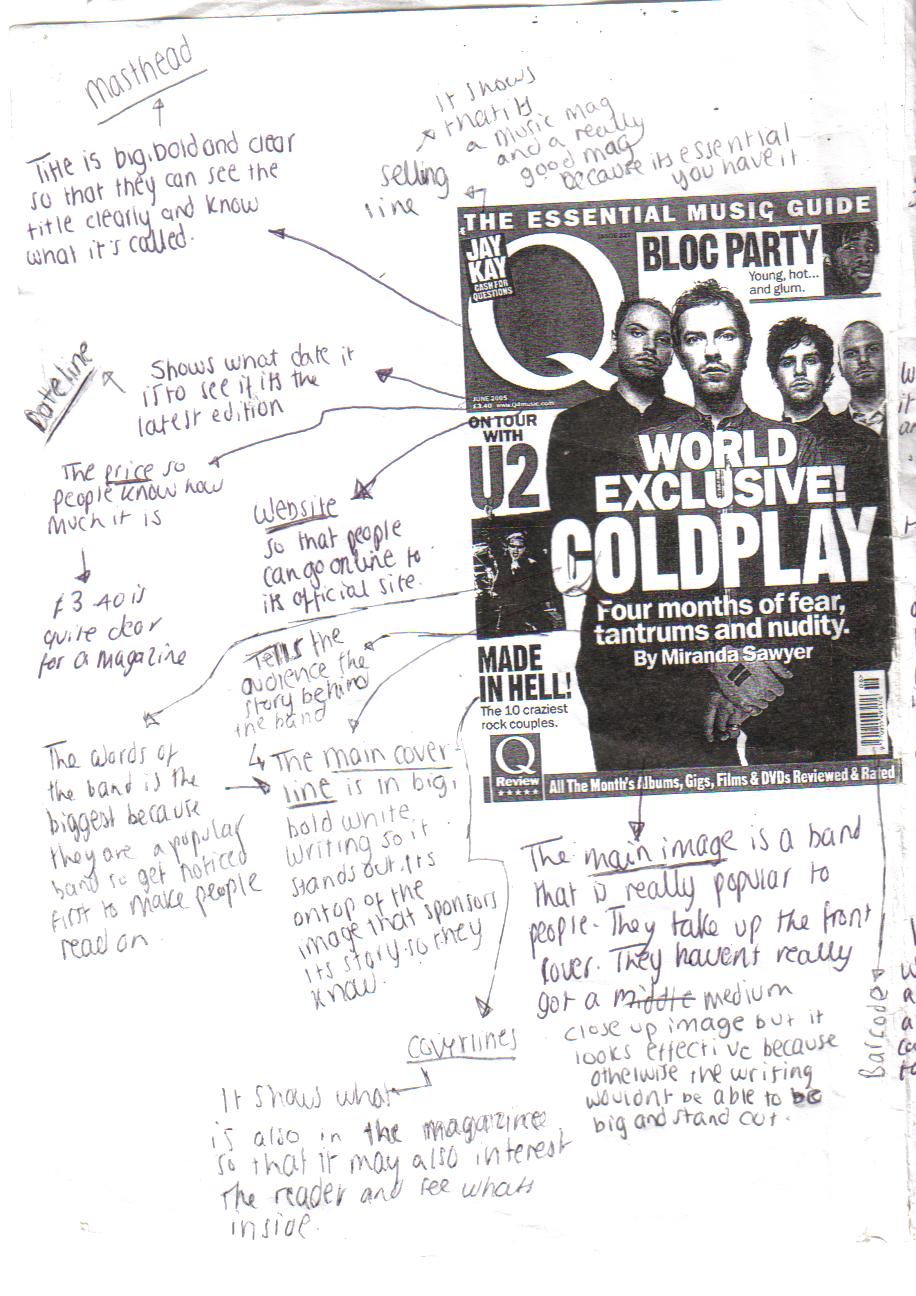 masthead
Title is big, bold and clear
so that they can see the
title clearly and know
what it's called.
selling
line
it shows
that its
a music mag
and a really
good mag
because its essential
you have it
Dateline
Shows what date it
is to see if its the
latest edition
The price so
people know how
much it is
£3.40 is
quite dear
for a magazine
Website
so that people
can go online to
its official site.
Tells the
audience the
story behind
the band
The words of
the band is the
biggest because
they are a popular
band so get noticed
first to make people
read on.
The main cover-
line is in big,
bold white
writing so it
stands out. Its
ontop of the
image that sponsors
its story so they
know.
coverlines
It shows what
is also in the magazine
so that it may also interest
the reader and see whats
inside.
The main image is a band
that is really popular to
people. They take up the front
cover. They havent really
got a middle medium
close up image but it
looks effective because
otherwise the writing
wouldnt be able to be
big and stand out.
Barcode
THE ESSENTIAL MUSIC GUIDE
JAY
KAY
CASH FOR
QUESTIONS
Q
BLOC PARTY
Young, hot...
and glum.
JUNE 2005
£3.40 www.q4music.com
ON TOUR
WITH
U2
WORLD
EXCLUSIVE!
COLDPLAY
Four months of fear,
tantrums and nudity.
By Miranda Sawyer
MADE
IN HELL!
The 10 craziest
rock couples.
Q
Review
★★★★★
All The Month's Albums, Gigs, Films & DVDs Reviewed & Rated